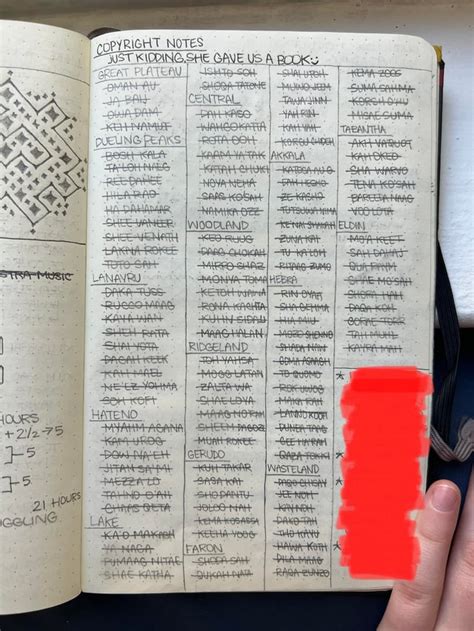 STRA MUSIC
HOURS
+ 2 1/2 → 5
5
5
21 HOURS
GGLING
COPYRIGHT NOTES
JUST KIDDING, SHE GAVE US A BOOK
GREAT PLATEAU
OMAN AU
JA BAIJ
OWA DAIM
KEH NAMUT
DUELING PEAKS
BOSH KALA
TA'LOH NAEG
REE DAHEE
HILA RAO
HA DAHAMAR
SHEE VANEER
SHEE VENATH
LAKNA ROKEE
TOTO SAH
LANAYRU
DAKA TUSS
RUCCO MAAG
KAYA WAN
SHEH RATA
SHAI YOTA
DAGAH KEEK
KAH MAEL
NE'EZ YOHMA
SOH KOFI
HATENO
MYAHM AGANA
KAM UROG
DOW NA'EH
JITAN SA'MI
MEZZA LO
TAHNO O'AH
CHAAS QETA
LAKE
KA'O MAKAGH
YA NAGA
PUMAAG NITAE
SHAE KATHA
ISHTO SOH
SHOGA TATONE
CENTRAL
DAH KASO
WAHGO KATTA
ROTA OOH
KAAM YA'TAK
KATAH CHUKI
NOYA NEHA
SAAS KO'SAH
NAMIKA OZZ
WOODLAND
KEO RUUG
DAAG CHOKAH
MIRRO SHAZ
MONYA TOMA
KETOH WAWAI
RONA KACHTA
KUHN SIDAJ
MAAG HALAN
RIDGELAND
TOH YAHSA
MOGG LATAN
ZALTA WA
SHAE LOYA
MAAG NO'RAH
SHEEM DAGOZ
MIJAH ROKEE
GERUDO
KUH TAKAR
SASA KAI
SHO DANTU
JOLOO NAH
KEMA KOSASSA
KEEHA YOOG
FARON
SHODA SAH
QUKAH NATA
SHAI UTOH
MUWO JEEM
TAWA JINN
YAH RIN
KAH YAH
KORGU CHIDEH
AKKALA
KATOSA AUG
DAH HESHO
ZE KASHO
TUTSUWA NIMA
KE'NAI SHAKAH
ZUNA KAI
TU KA'LOH
RITAAG ZUMO
HEBRA
RIN OYAA
SHA GEHMA
HIA MIU
MOZO SHENNO
SHADA NAW
GOMA ASAAGH
TO QUOMO
ROK UWOG
MAKA RAH
LANNO KOOH
DUNBA TAAG
GEE HA'RAH
QAZA TOKKI
WASTELAND
DAQO CHISAY
JEE NOH
KAY NOH
DAKO TAH
THO KAYU
HAWA KOTH
DILA MAAG
RAQA ZUNZO
KEMA ZOOS
SUMA SAHMA
KORSH O'HU
MISAE SUMA
TABANTHA
AKH VA'QUOT
KAH OKEO
SHA WARVO
TENA KO'SAH
BAREEDA NAAG
VOO LOTA
ELDIN
MO'A KEET
SAH DAHAJ
QUA RAYM
SHAE MO'SAH
SHORA HAH
DAQA KOH
GORAE TORR
TAH MUHL
KAYRA MAH